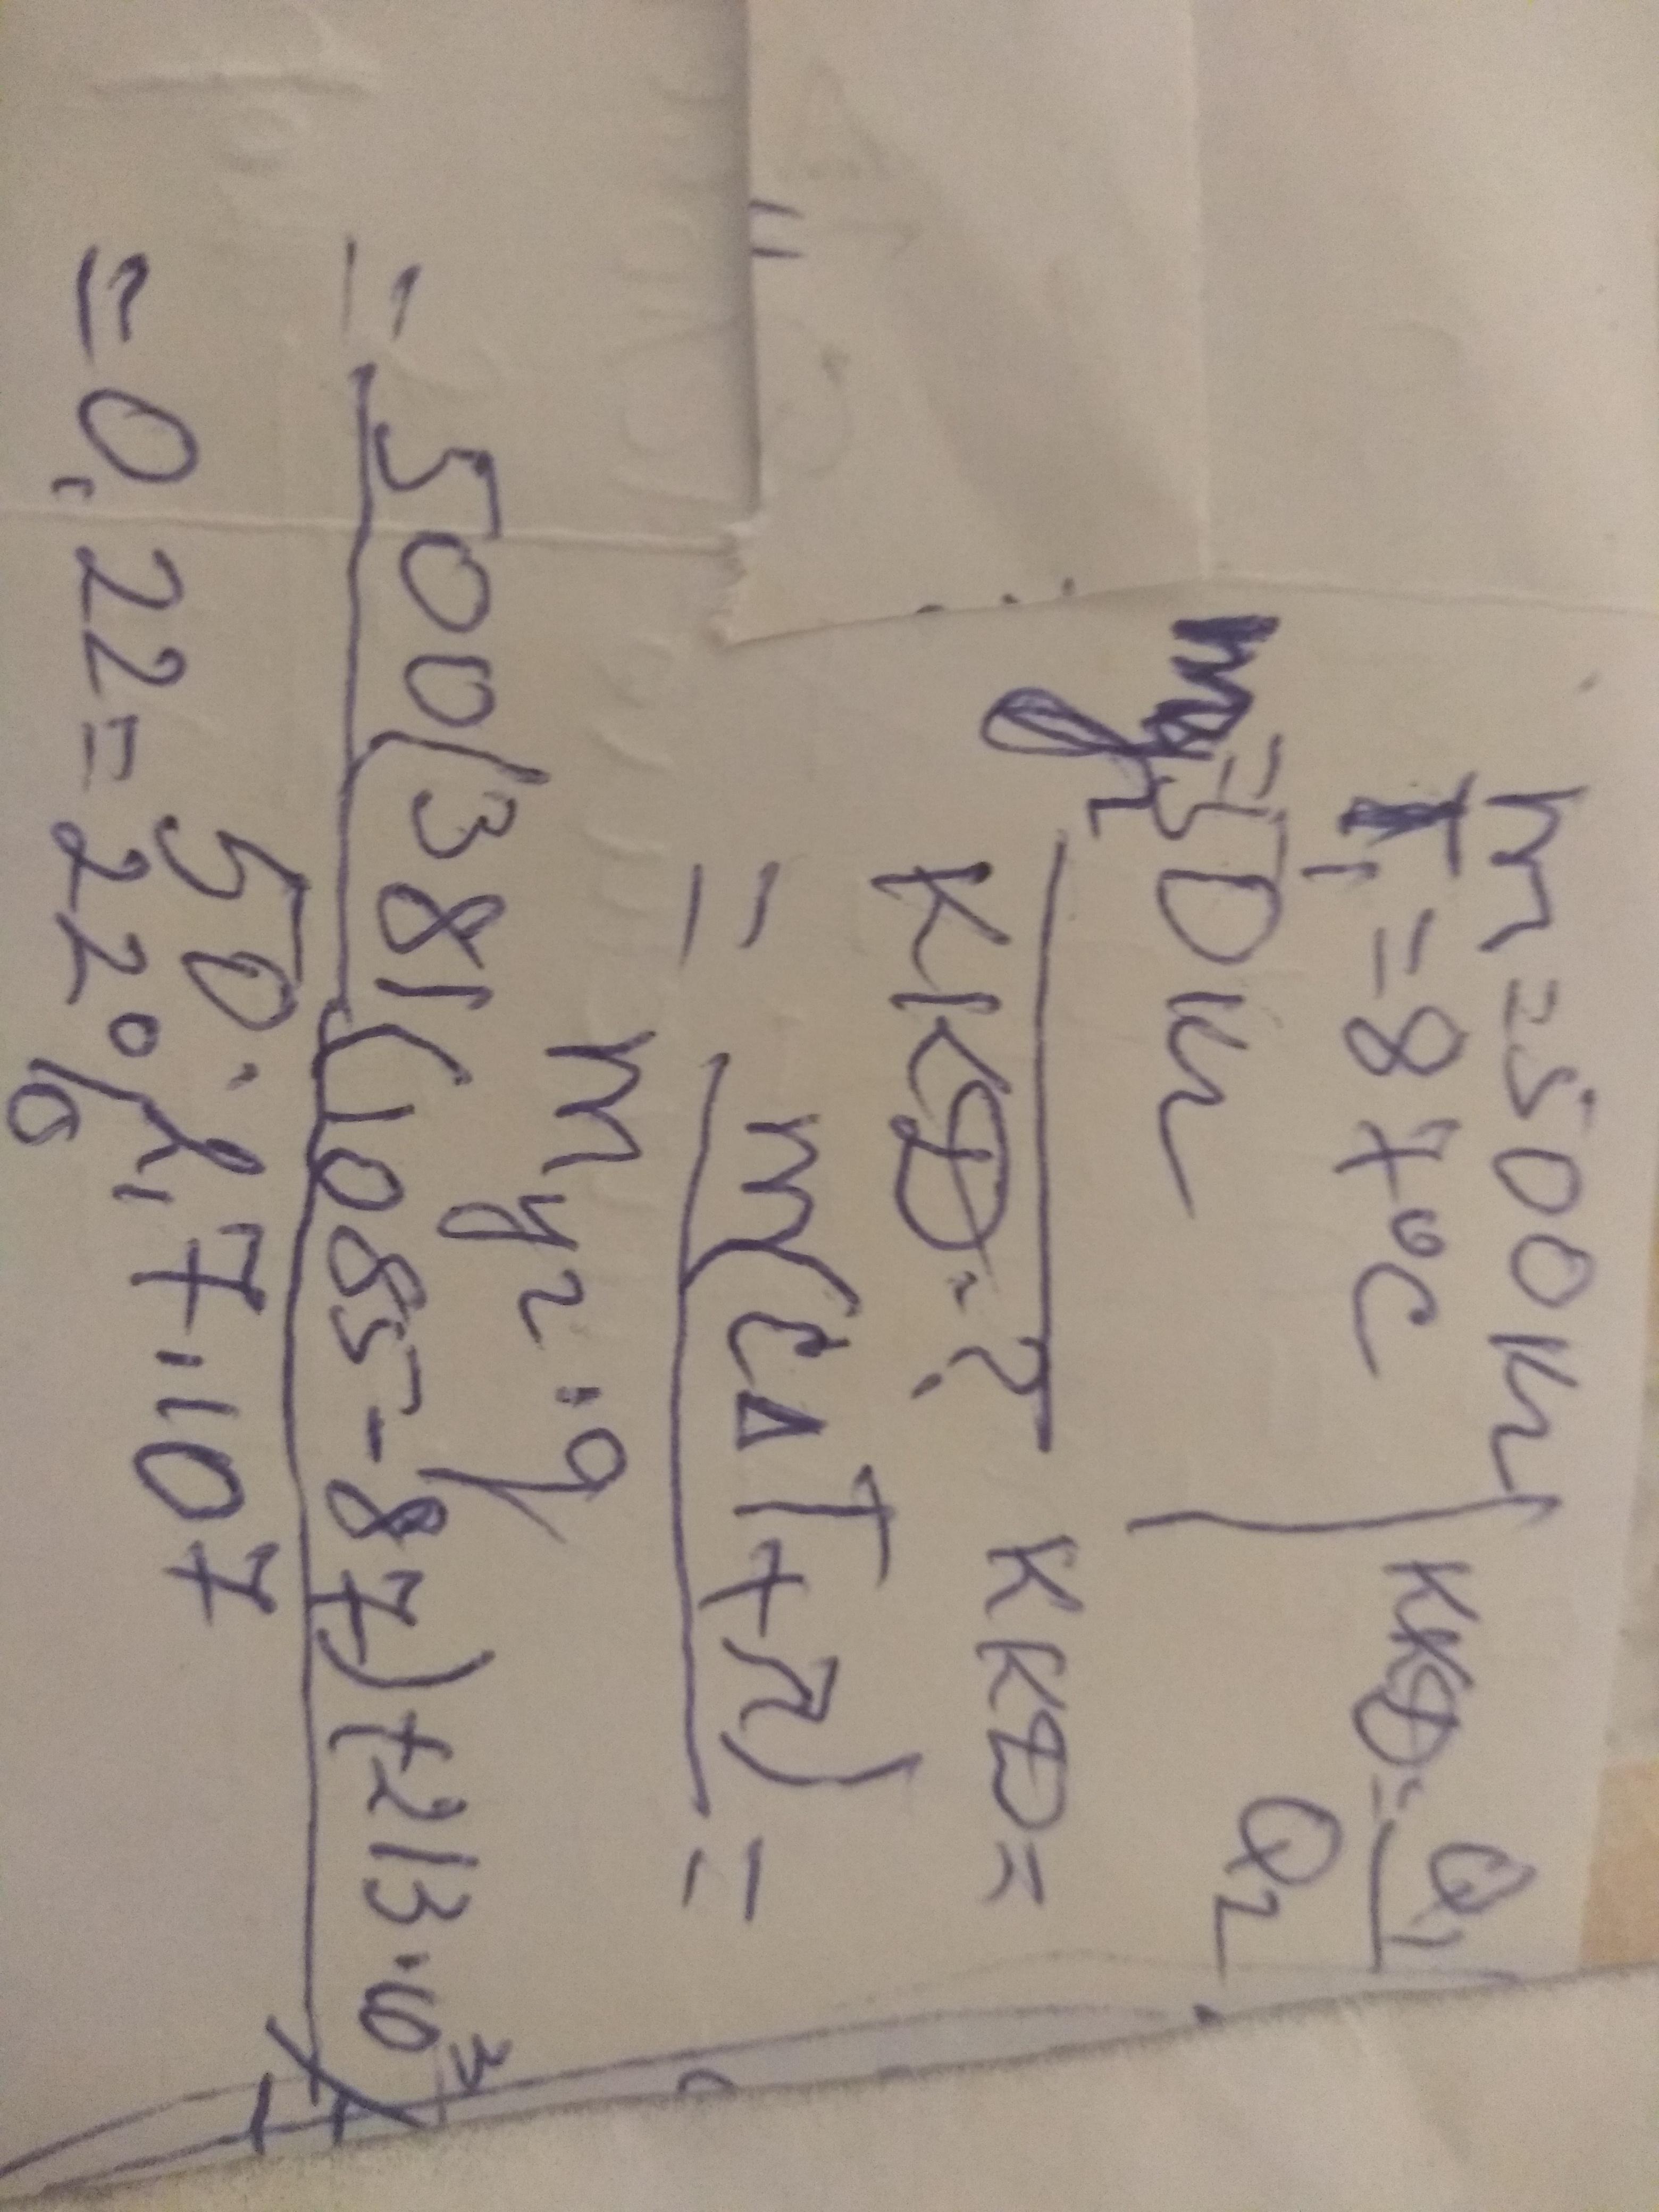 m=500кг
t₁=87°C
=50кг
ККД-?
ККД=Q₁/Q₂
ККД=
= m(cΔT+λ) =
m у2 · q
= 500(381(1085-87)+213·10³)
50·2,7·10⁷
=0,22=22%